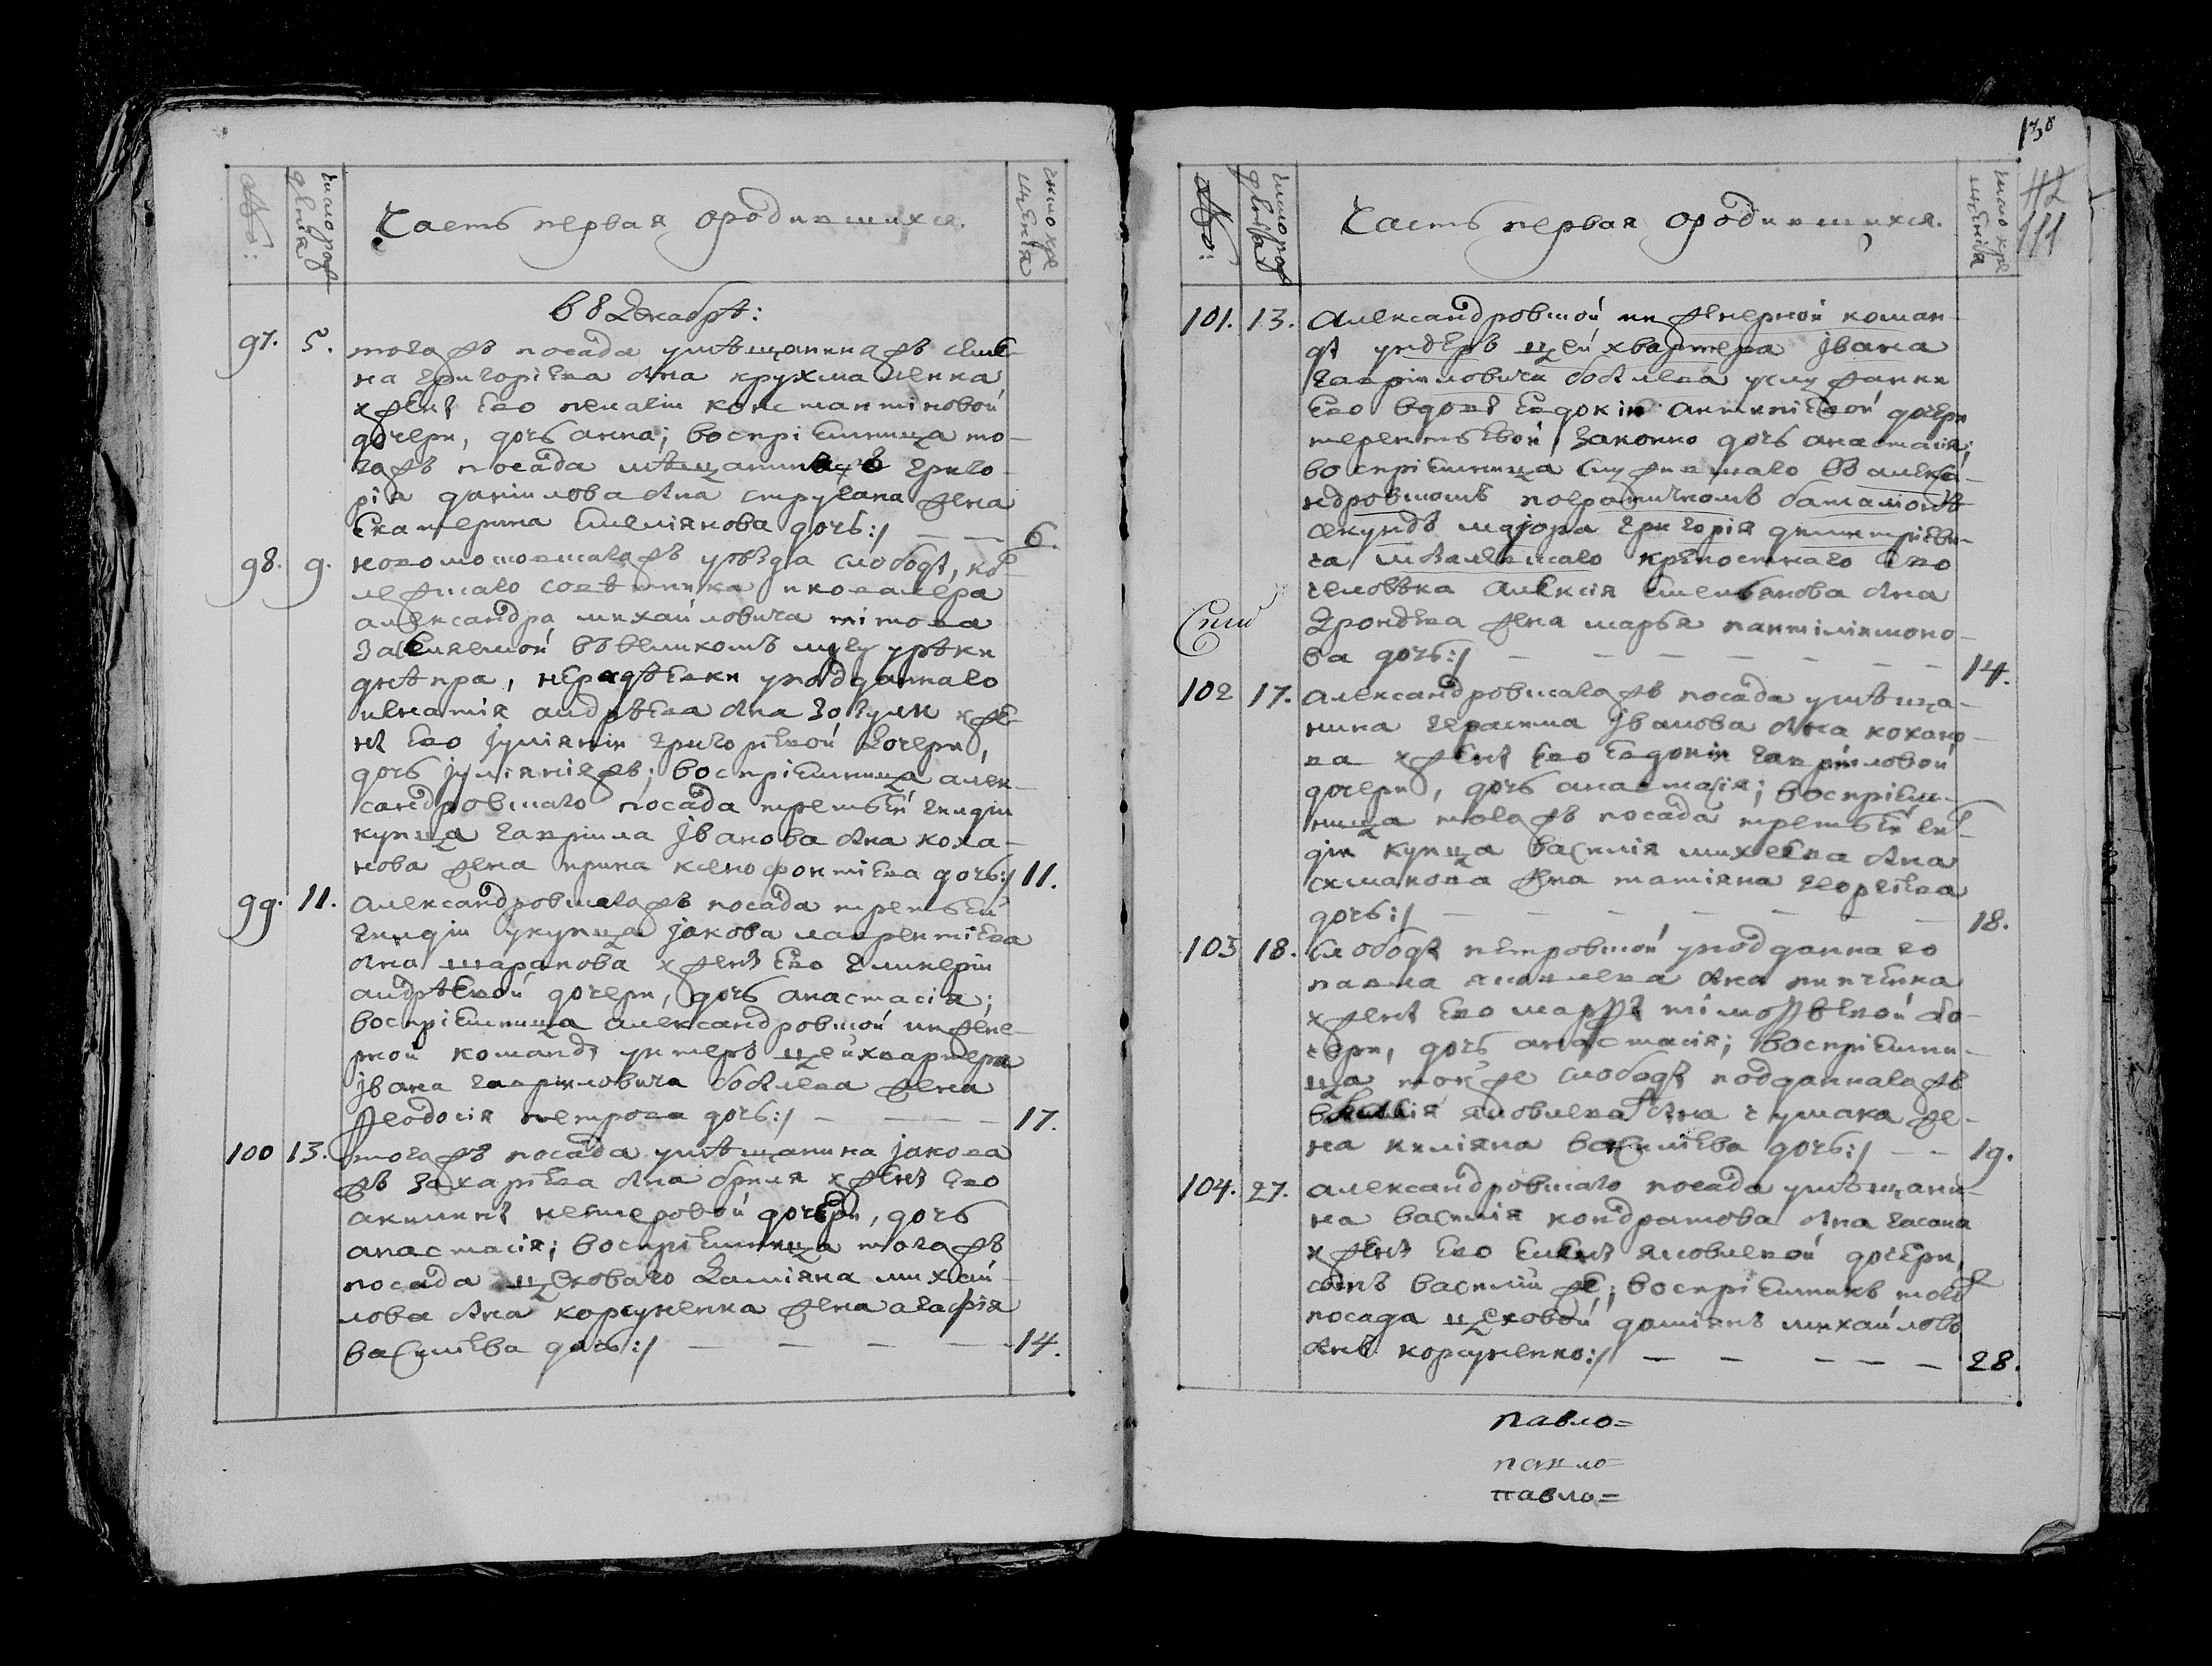 №:
число рож
денія
Часть первая ородившихся.
число кре
щенія
въ Декабрѣ:
97. 5. тогажъ посада умѣщанинажъ семе-
на григоріева сна крухмаленка
жены его пелагіи константиновой
дочери, дочь анна; воспріемница то-
гажъ посада мѣщанина григо-
рія даніилова сна стругана жена
екатерина емеліянова дочь:/ — — 6.
98. 9. новомосковскагожъ уѣзда слободы, ко-
лежского совѣтника икавалера
александра михайловича тітова
заселяемой въвеликомъ лугу урѣки
днѣпра, нерадѣевки уподданнаго
игнатія андрѣева сна зозули же-
ны его іуліяніи григоріевой дочери,
дочь іуліяніяжъ; воспріемница алек-
сандровскаго посада третьей гилдіи
купца гавріила іванова сна коха-
нова жена ирина ксенофонтіева дочь:/ 11.
99. 11. александровскагожъ посада третьей
гилдіи укупца јакова лаврентіева
сна шарапова жены его гликеріи
андрѣевой дочери, дочь анастасія;
воспріемница александровской инжене-
рной команды унтеръ цейхвартера
івана гавриловича бобылева жена
Ѳеодосія петрова дочь:/ — — — 17.
100 13. тогажъ посада умѣщанина јакова
жъ захаріева сна бриля жены его
акилины нестеровой дочери, дочь
анастасія; воспріемница тогажъ
посада цеховаго даміяна михай-
лова сна корсуненка жена агафія
василіева дочь:/ — — — — 14.
130
112
111
№:
число рож
денія
Часть первая ородившихся.
число кре
щенія
101. 13. александровской инженерной коман-
ды ундеръ цейхвартера івана
гавріиловича бобылева услужанки
его вдовы евдокіи антипіевой дочери
терентьевой законно дочь анастасія;
воспріемница служившаго въ алекса-
ндровскомъ пограничномъ баталіонѣ
секундъ маіора григорія димитріеви-
ча крѣпостнаго его
человѣка алексія емельянова сна
дрондева жена марья пантілімоно-
ва дочь:/ — — — — — — 14.
102 17. александровскагожъ посада умѣща-
нина герасима іванова сна кохано-
ва жены его евдокіи гавріиловой
дочери, дочь анастасія; воспріем-
ница тогажъ посада третьей гил-
діи купца василія михеева сна
жена татіяна георгіева
дочь:/ — — — — — — — 18.
103 18. слободы петровской уподданнаго
павла яковлева сна пипченка
жены его марфы тімоѳѣевой до-
чери, дочь анастасія; воспріемни-
ца тойже слободы подданнагожъ
василія яковлева сна чумака же-
на киліяна василіева дочь:/ — — 19.
104. 27. александровскаго посада умѣщани-
на василія кондратова сна гасана
жены его елены яковлевой дочери,
сынъ василій же; воспріемникъ тогож
посада цеховой даміянъ михайловъ
снъ корсуненко:/ — — — — — 28.
павло=
павло=
павло=